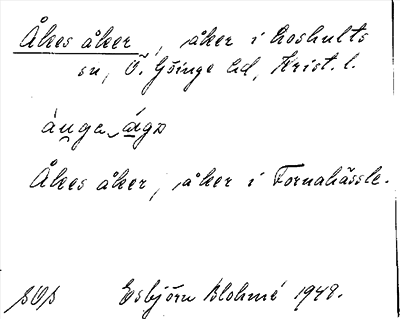 Åkes åker, åker i Loshults
sn, Ö. Göinge hd, Krist. l.
Åkes åker, åker i Fornahässle.
Esbjörn Blohmé 1948.